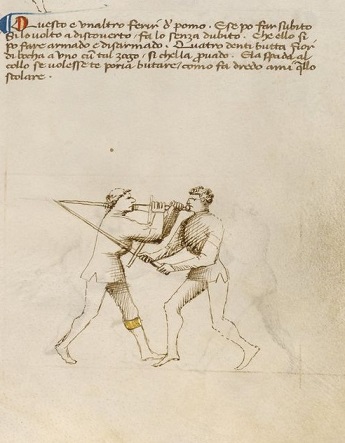 Questo e un altro ferir d' pomo. E se po far subito
Si lo volto a discoverto fa lo senza dubito. Che ello si
po fare armado e disarmado. Quatro denti butta fuor
di bocha a uno cũ tal zogo si chella provado. E la spada al
collo se volesse te poria butare, como fa dredo a mi q̃llo
scolare.